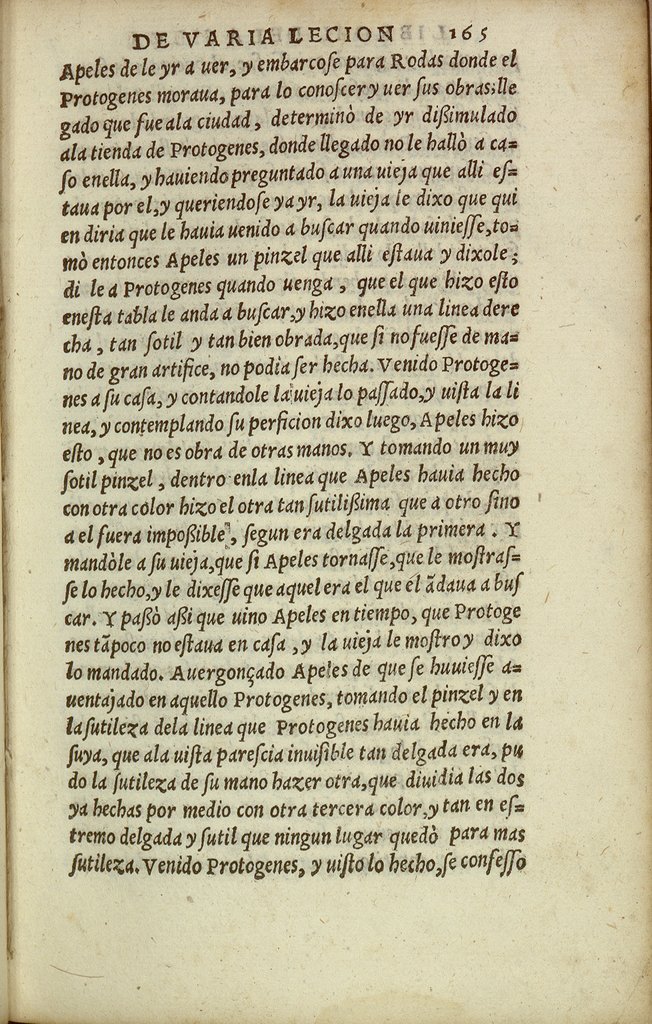 DE VARIA LECION 165
Apeles de le yr a uer, y embarcose para Rodas donde el
Protogenes moraua, para lo conoſcer y uer ſus obras: lle
gado que fue ala ciudad, determinò de yr dißimulado
ala tienda de Protogenes, donde llegado no le hallò a ca=
ſo enella, y hauiendo preguntado a una uieja que alli eſ=
taua por el, y queriendoſe ya yr, la uieja le dixo que qui
en diria que le hauia uenido a buſcar quando uinieſſe, to=
mò entonces Apeles un pinzel que alli eſtaua y dixole;
di le a Protogenes quando uenga, que el que hizo eſto
eneſta tabla le anda a buſcar, y hizo enella una linea dere
cha, tan ſotil y tan bien obrada, que ſi no fueſſe de ma=
no de gran artifice, no podia ſer hecha. Venido Protoge=
nes a ſu caſa, y contandole la uieja lo paſſado, y uiſta la li
nea, y contemplando ſu perficion dixo luego, Apeles hizo
eſto, que no es obra de otras manos. Y tomando un muy
ſotil pinzel, dentro enla linea que Apeles hauia hecho
con otra color hizo el otra tan ſutilißima que a otro ſino
a el fuera impoßible, ſegun era delgada la primera. Y
mandòle a ſu uieja, que ſi Apeles tornaſſe, que le moſtraſ=
ſe lo hecho, y le dixeſſe que aquel era el que el ãdaua a buſ
car. Y paßò aßi que uino Apeles en tiempo, que Protoge
nes tãpoco no eſtaua en caſa, y la uieja le moſtro y dixo
lo mandado. Auergonçado Apeles de que ſe huuieſſe a=
uentajado en aquello Protogenes, tomando el pinzel y en
la ſutileza dela linea que Protogenes hauia hecho en la
ſuya, que ala uiſta pareſcia inuiſible tan delgada era, pu
do la ſutileza de ſu mano hazer otra, que diuidia las dos
ya hechas por medio con otra tercera color, y tan en eſ=
tremo delgada y ſutil que ningun lugar quedò para mas
ſutileza. Venido Protogenes, y uiſto lo hecho, ſe confeſſo